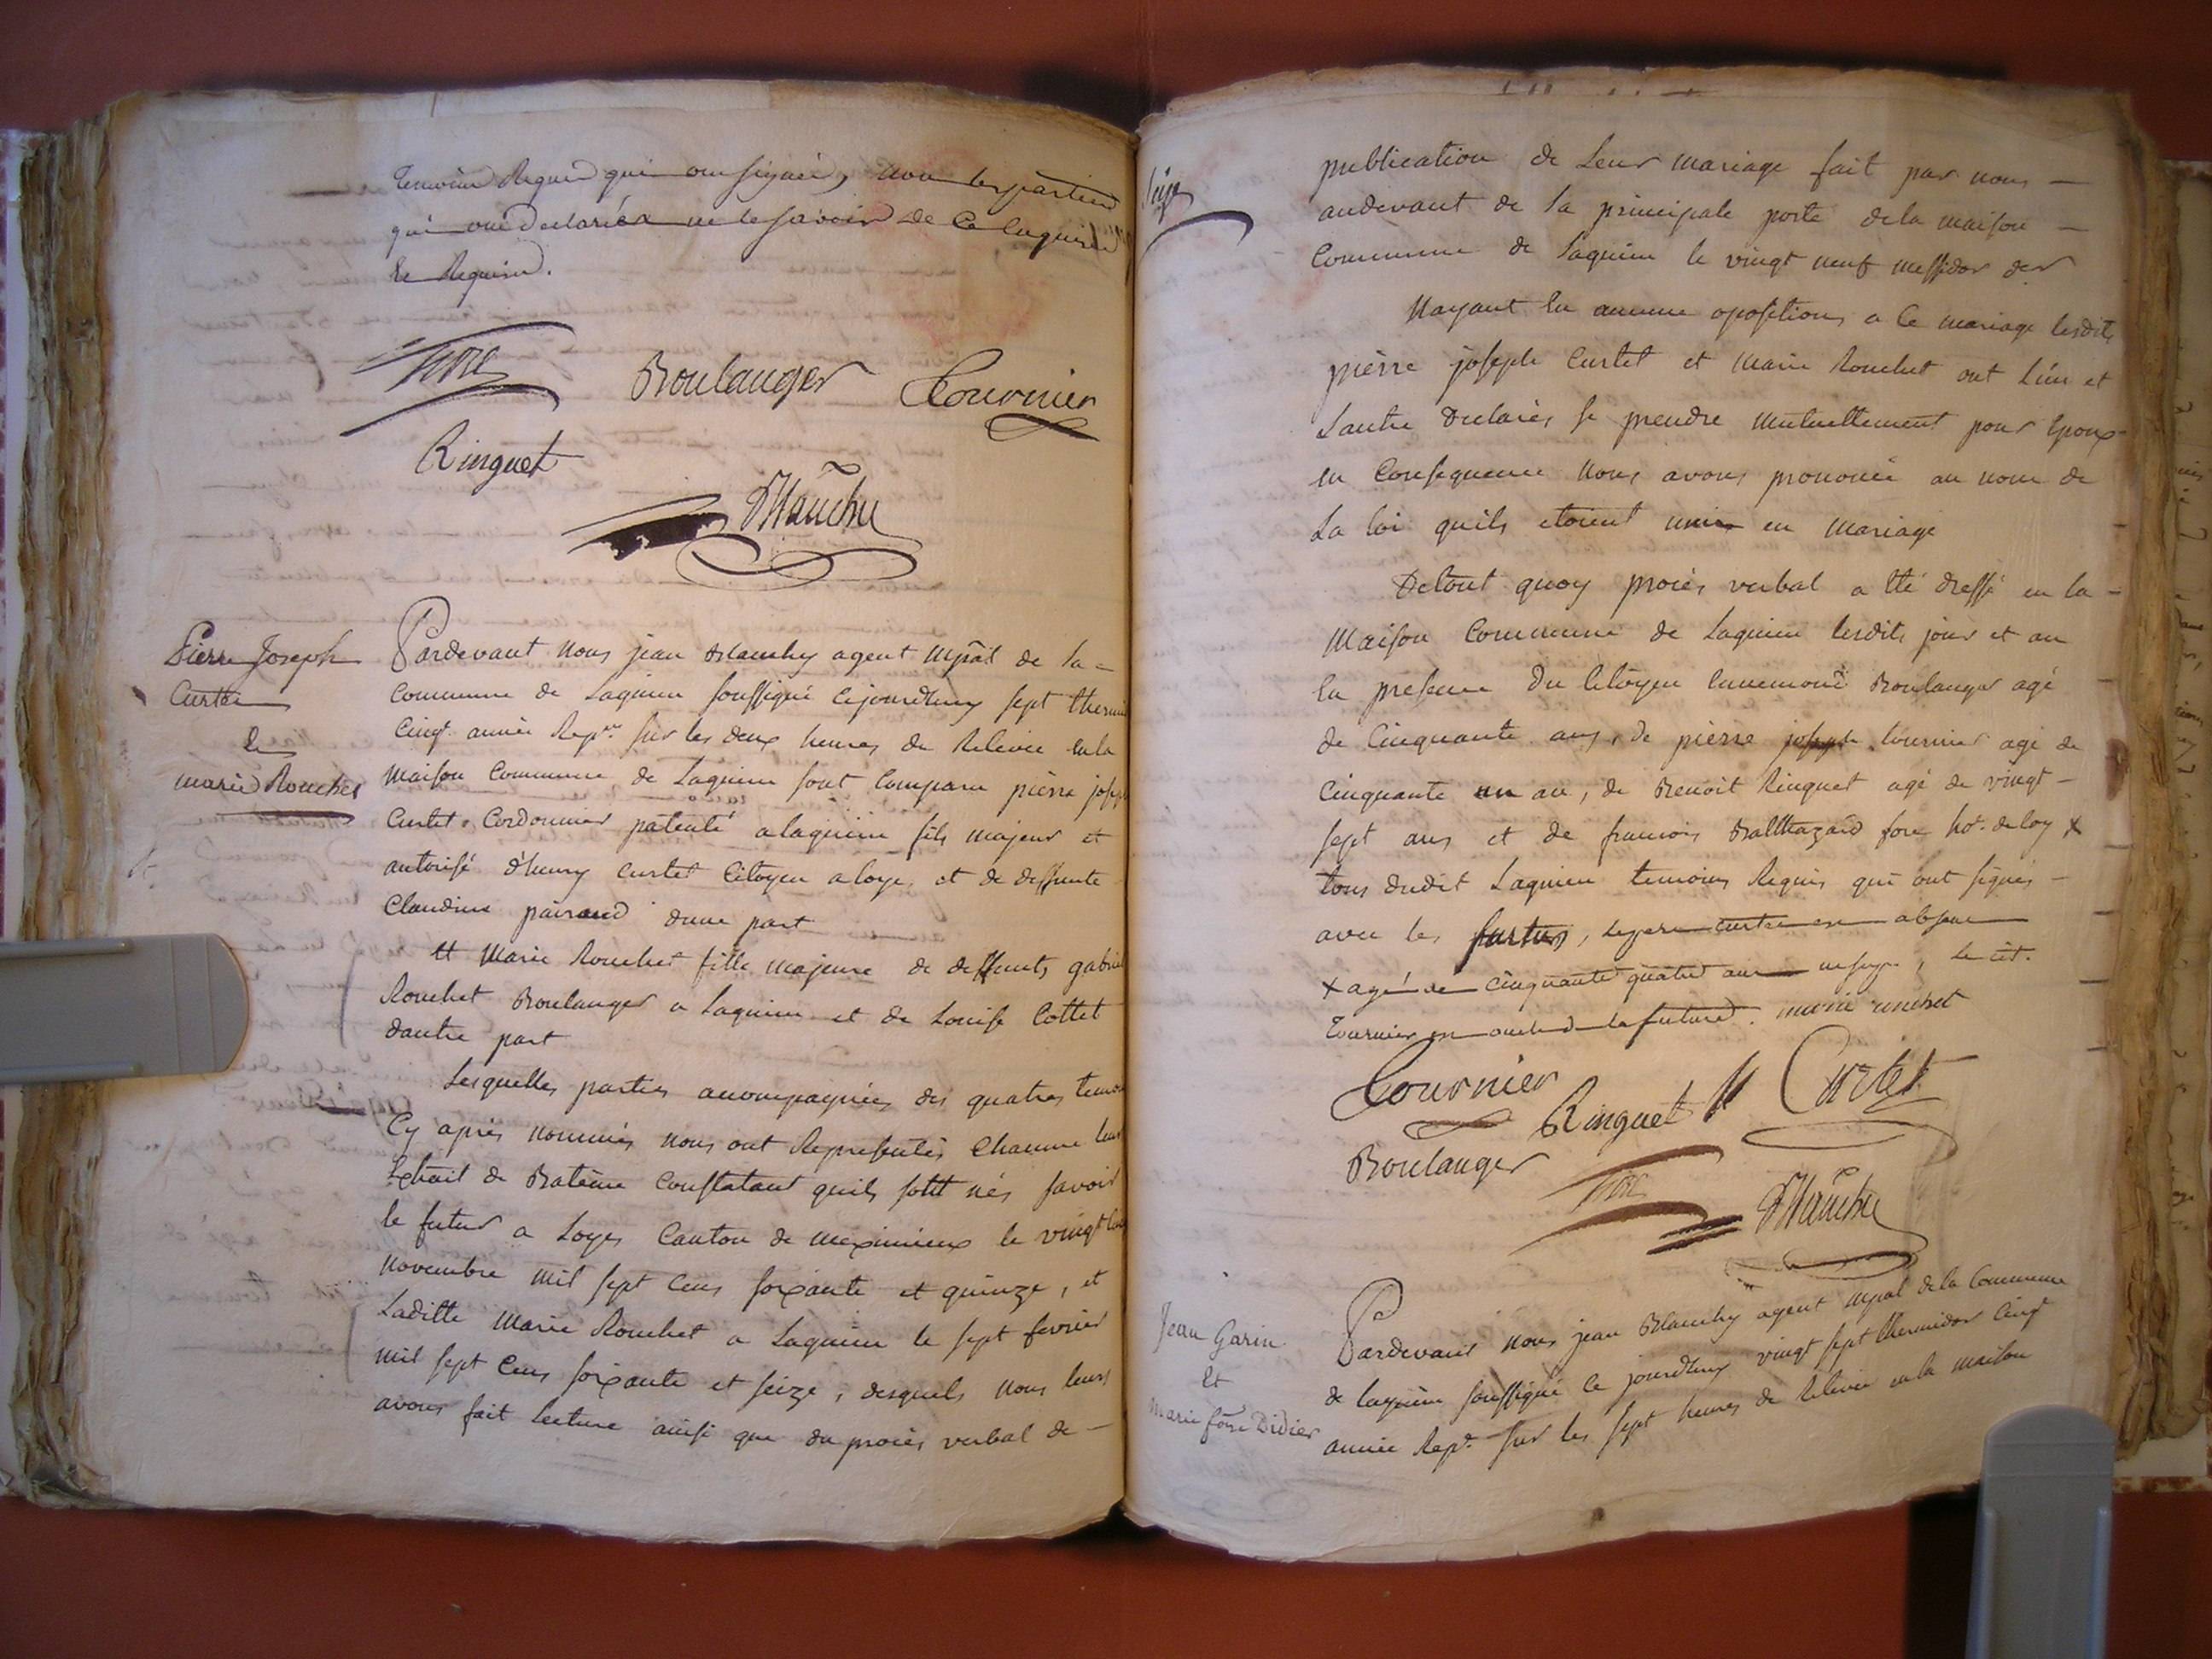 temoins Requis qui ont signés, avec les parties
qui ont declarées ne le savoir de ce enquises
et Requises.
fore Boulanger Tournier
Ringuet
Blanchy
Pierre Joseph
Curtet
et
marie Rouchet
Pardevant nous jean Blanchy agent mpãl de la =
Commune de Lagnieu soussigné cejourdhuy sept thermid
Cinqe. année Repne. sur les deux heures de Relevée en la
Maison Commune de Lagnieu sont Comparu pièrre joseph
Curtet Cordonnier patenté a lagnieu fils majeur et
autorisé d'henry Curtet Citoyen a loyes, et de deffunte
Claudine pairaud dune part
Et Marie Rouchet fille majeure de deffunts gabriel
Rouchet Boulanger a Lagnieu et de Louise Cottet
dautre part
Lesquelles parties accompagnées des quatres temoins
Cy après nommés nous ont Representés Chacune leur
Extrait de Batême Constatant quils sont nés savoir
le futur a Loyes Canton de meximieux le vingt
novembre mil sept Cens soixante et quinze, et
Laditte Marie Rouchet a Lagnieu le sept fevrier
mil sept Cens soixante et seize, desquels nous leurs
avons fait lecture ainsi que du procès verbal de —
Seize
publication de Leur mariage fait par nous —
audevant de la principale porte dela maison —
Commune de Lagnieu le vingt neuf messidor der
Nayant Eu aucune opositions a Ce mariage lesdits
pièrre joseph Curtet et Marie Rouchet ont L'un et
Lautre Declarés se prendre mutuellement pour Epoux
en Consequence nous avons prononcé au nom de
La loi quils etoient unis en mariage
Detout quoy procès verbal a Eté dressé en la —
Maison Commune de Lagnieu lesdits jour et an
En presence du Citoyen Ennemond Boulanger agé
de Cinquante ans, de pièrre joseph tournier agé de
Cinquante un an, de Benoit Ringuet agé de vingt —
sept ans et de francois Balthazard fore hoe. de loy x
tous dudit Lagnieu temoins Requis qui ont signés —
avec les futurs, le pere curtet en absence
x agé de cinquante quatre ans , le cit.
Tournier la future. marie rouchet
Tournier Ringuet H Curtet
Boulanger fore Blanchy
Jean Garin
Et
marie foise Didier
Pardevant nous jean Blanchy agent mpal de la Commune
de lagnieu soussigné Ce jourdhuy vingt sept thermidor Cinqe
année Repe. sur les sept heures de Relevée en la maison